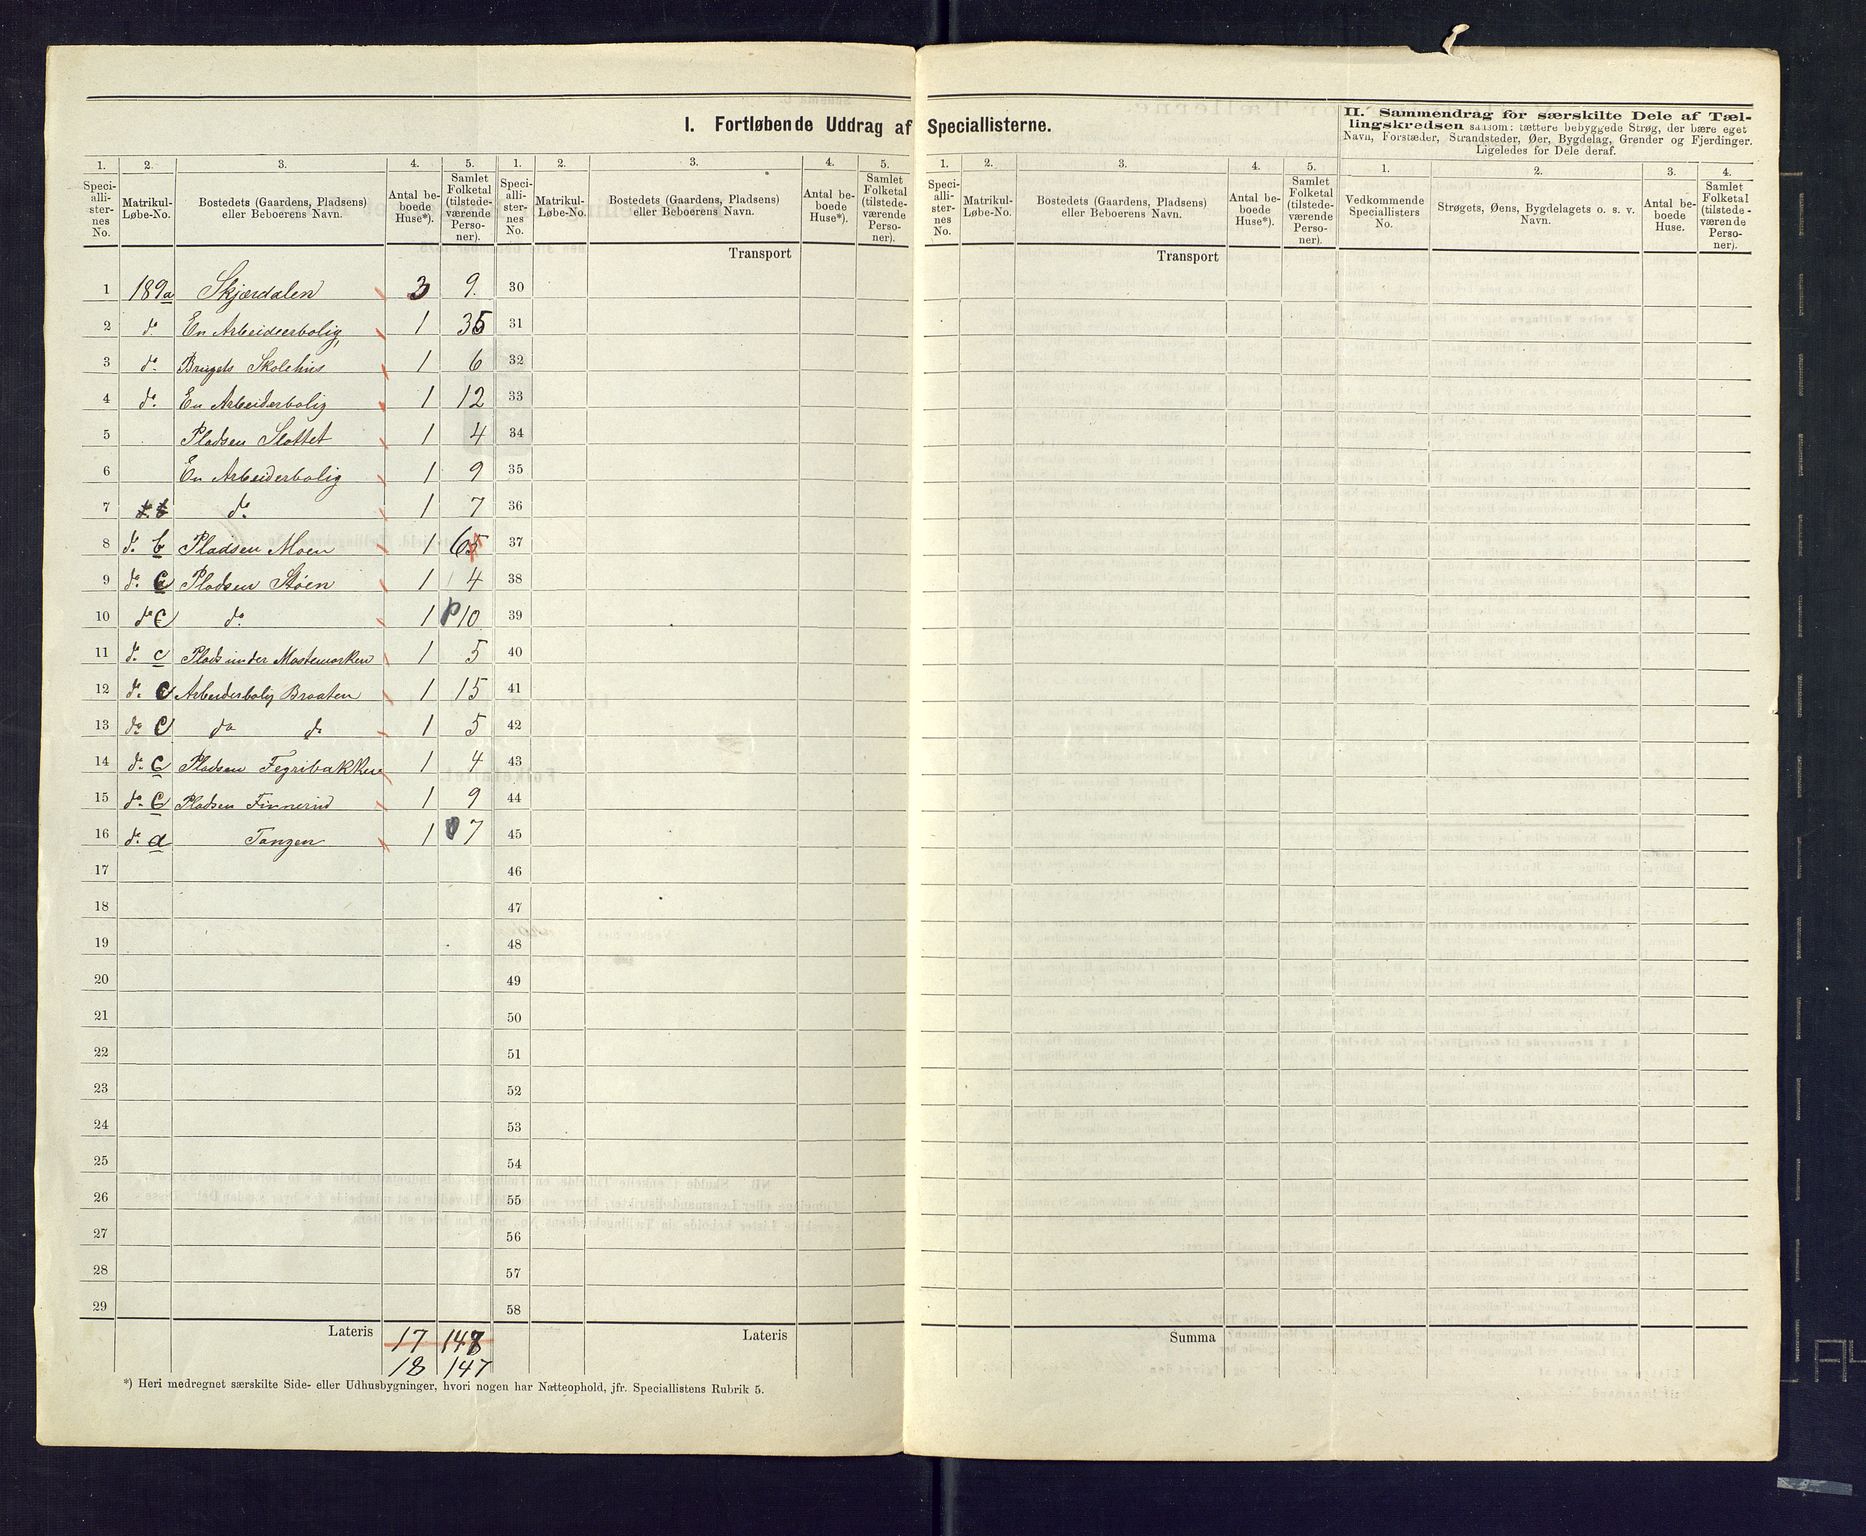 I. Fortløbende Uddrag af Speciallisterne.
II. Sammendrag for særskilte Dele af Tæl-
lingskredsen saasom: tættere bebyggede Strøg, der bære eget
Navn, Forstæder, Strandsteder, Øer, Bygdelag, Grender og Fjerdinger.
Ligeledes for Dele deraf.
1. 2. 3. 4. 5. 1. 2. 3. 4. 5. 1. 2. 3. 4. 5. 1. 2. 3. 4.
Speci-alli-ster-nes No. Matrikul-Løbe-No. Bostedets (Gaardens, Pladsens) eller Beboerens Navn. Antal be-boede Huse*). Samlet Folketal (tilstede-værende Perso-ner).
Speci-alli-ster-nes No. Matrikul-Løbe-No. Bostedets (Gaardens, Pladsens) eller Beboerens Navn. Antal be-boede Huse*). Samlet Folketal (tilstede-værende Perso-ner).
Speci-alli-ster-nes No. Matrikul-Løbe-No. Bostedets (Gaardens, Pladsens) eller Beboerens Navn. Antal be-boede Huse*). Samlet Folketal (tilstede-værende Perso-ner).
Vedkommende Speciallisters No. Strøgets, Øens, Bygdelagets o. s. v. Navn. Antal be-boede Huse. Samlet Folketal (tilstede-værende Perso-ner).
Transport Transport
1 189a Skjærdalen 3 9. 30
2 do En Arbeiderbolig 1 35 31
3 do. Brugets Skolehus 1 6 32
4 do. En Arbeiderbolig 1 12 33
5 Pladsen Slottet 1 4 34
6 En Arbeiderbolig 1 9 35
7 do. 1 7 36
8 do. b Pladsen Moen 1 6 37
9 do. c Pladsen Støen 1 4 38
10 do c do. 1 10 39
11 do. c Plads under Mastemorken 1 5 40
12 do. c Arbeiderbolig Braaten 1 15 41
13 do c do do 1 5 42
14 do. c Pladsen Tegribakken 1 4 43
15 do. c Pladsen Finnerud 1 9 44
16 do. d Tangen 1 7 45
17 46
18 47
19 48
20 49
21 50
22 51
23 52
24 53
25 54
26 55
27 56
28 57
29 58
Lateris 17 148 Lateris Summa
18 147
*) Heri medregnet særskilte Side- eller Udhusbygninger, hvori nogen har Natteophold, jfr. Speciallistens Rubrik 5.